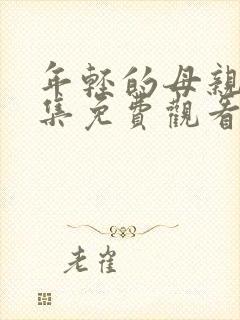 年轻的母亲
集免費觀看
老崔